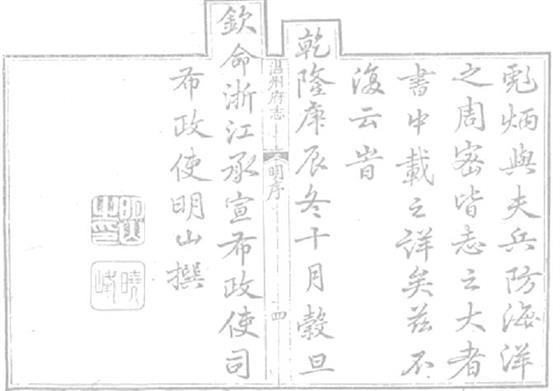 彪炳與夫兵防海洋
之周密皆志之大者
書中載之詳矣茲不
復云旹
乾隆庚辰冬十月穀旦
溫州府志
明序
四
欽命浙江承宣布政使司
布政使明山撰
明山之印
曉峰